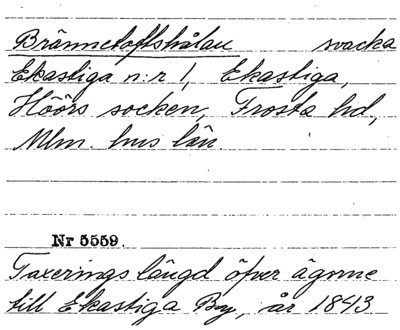 Brännetoftshålan svacka
Ekastiga n:r 1, Ekastiga,
Höörs socken, Frosta hd,
Mlm. hus län.
Nr 5559.
Taxerings längd öfver ägorne
till Ekastiga By, år 1843